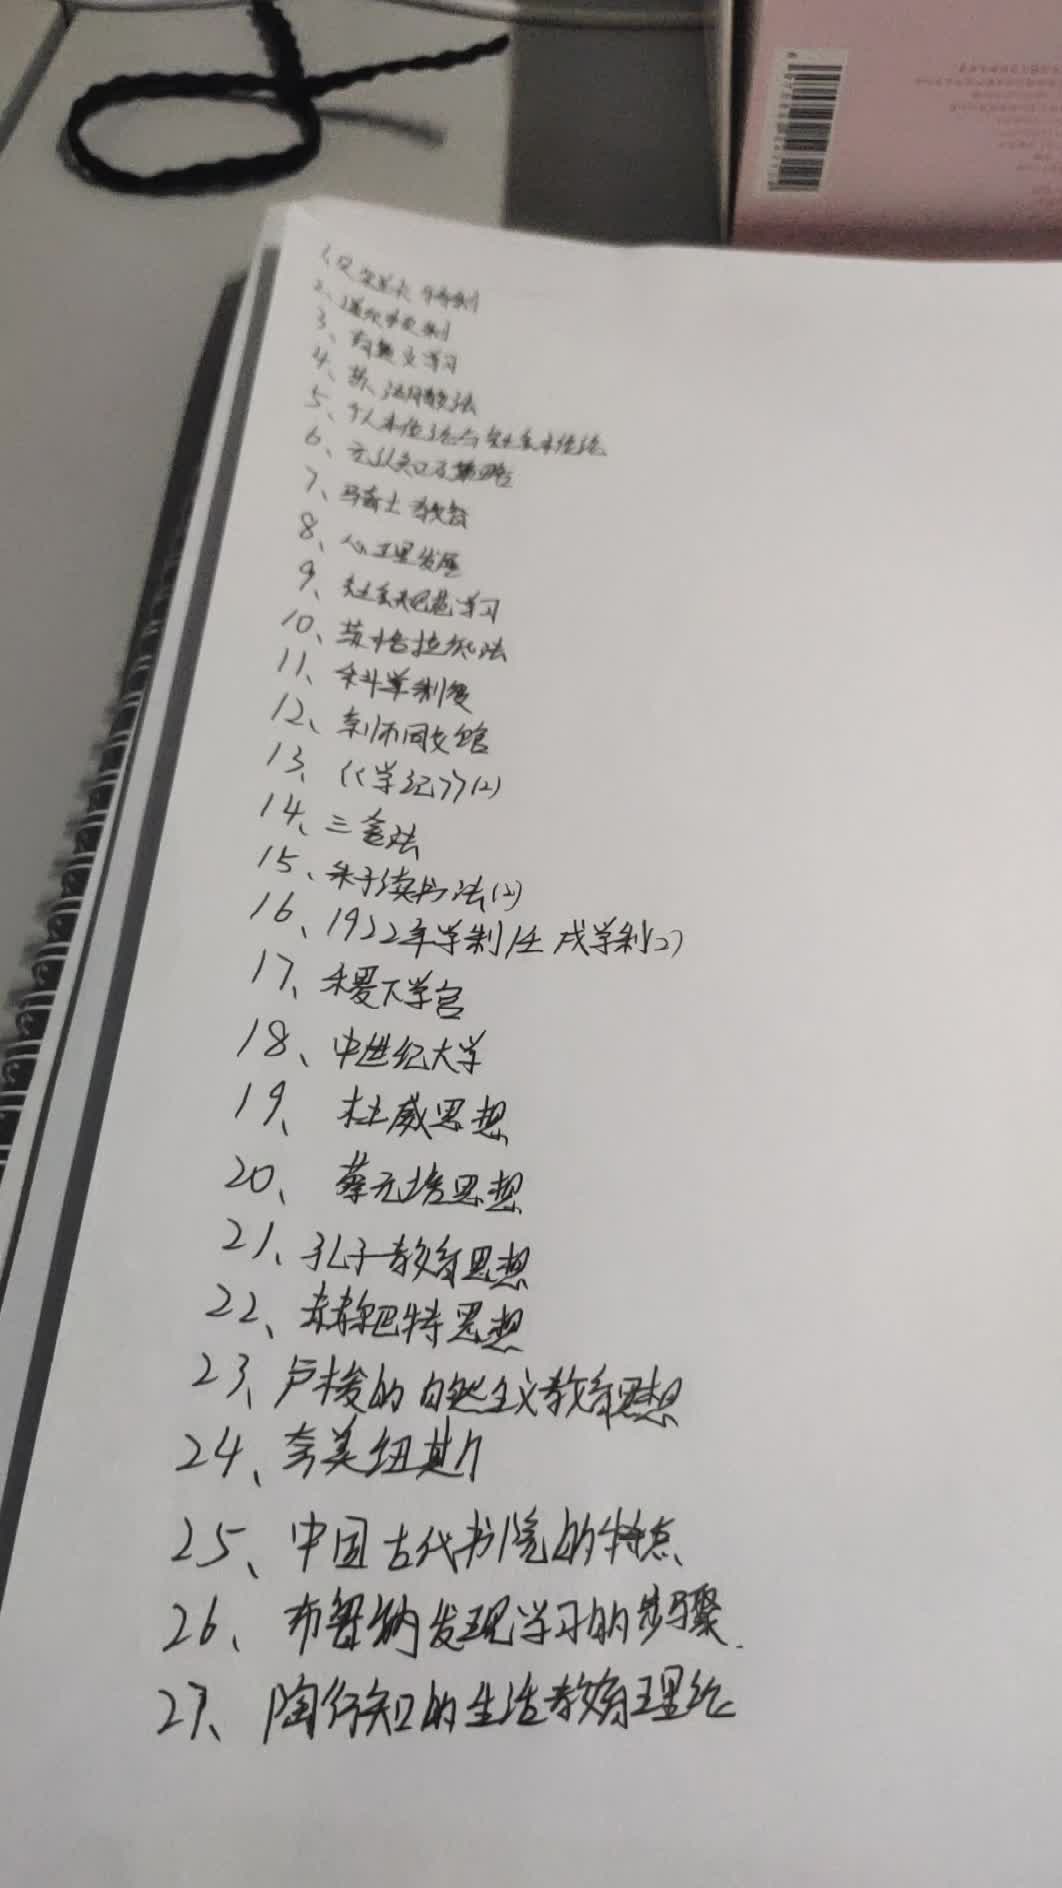 1、贝尔兰卡特制
2、道尔顿制
3、有意义学习
4、苏格拉底法
5、个人本位论与社会本位论
6、元认知策略
7、骑士教育
8、心理发展
9、社会规范学习
10、苏格拉底法
11、科举制度
12、京师同文馆
13、《学记》(2)
14、三舍法
15、朱子读书法(2)
16、1922年学制(壬戌学制2)
17、稷下学宫
18、中世纪大学
19、杜威思想
20、蔡元培思想
21、孔子教育思想
22、赫尔巴特思想
23、卢梭的自然主义教育思想
24、夸美纽斯
25、中国古代书院的特点
26、布鲁纳发现学习的步骤.
27、陶行知的生活教育理论